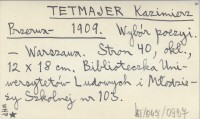 TETMAJER Kazimierz
Przerwa- 1909. Wybór poezyi.
- Warszawa. Stron 40, okł.,
12 x 18 cm. Biblioteczka Uni-
wersytetów Ludowych i Młodzie-
ży Szkolnej nr 103.